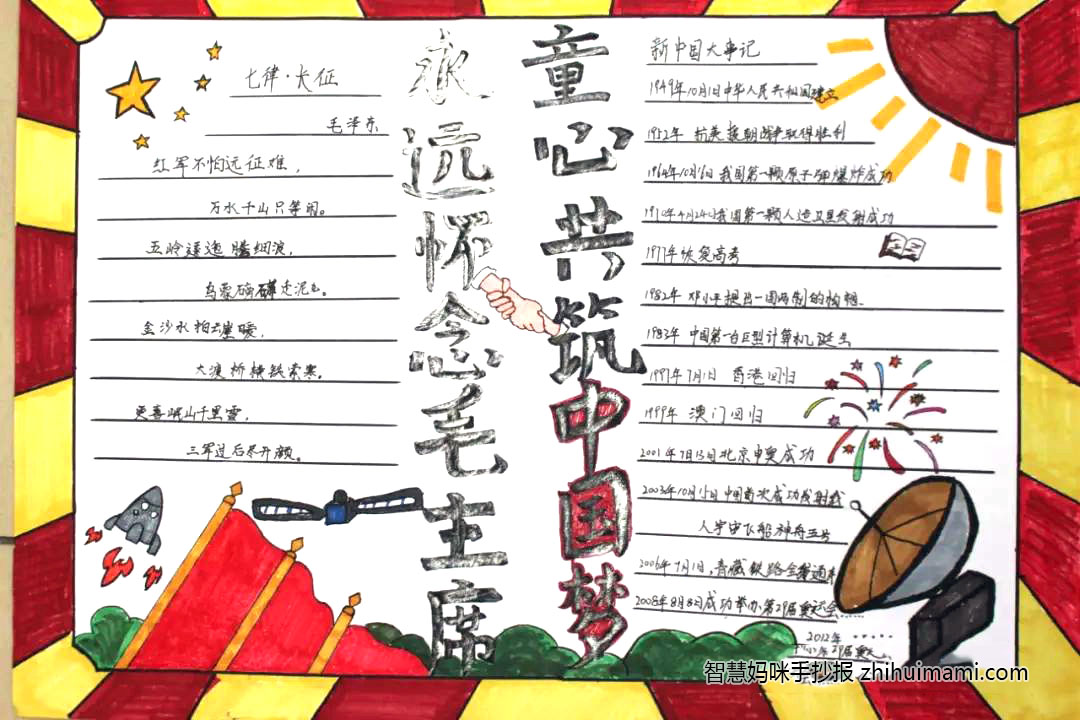 七律·长征
毛泽东
红军不怕远征难，
万水千山只等闲。
五岭逶迤腾细浪，
乌蒙磅礴走泥丸。
金沙水拍云崖暖，
大渡桥横铁索寒。
更喜岷山千里雪，
三军过后尽开颜。
永远怀念毛主席
童心共筑中国梦
新中国大事记
1949年10月1日中华人民共和国建立
1952年 抗美援朝战争取得胜利
1964年10月16日我国第一颗原子弹爆炸成功
1970年4月24日我国第一颗人造卫星发射成功
1977年恢复高考
1982年 邓小平提出一国两制的构想.
1983年 中国第一台巨型计算机诞生
1997年7月1日 香港回归
1999年 澳门回归
2001年7月13日北京申奥成功
2003年10月15日中国首次成功发射载
人宇宙飞船神舟五号
2006年7月1日,青藏铁路全线通车
2008年8月8日成功举办第29届奥运会......
2012年 .....
智慧妈咪手抄报 zhihuimami.com